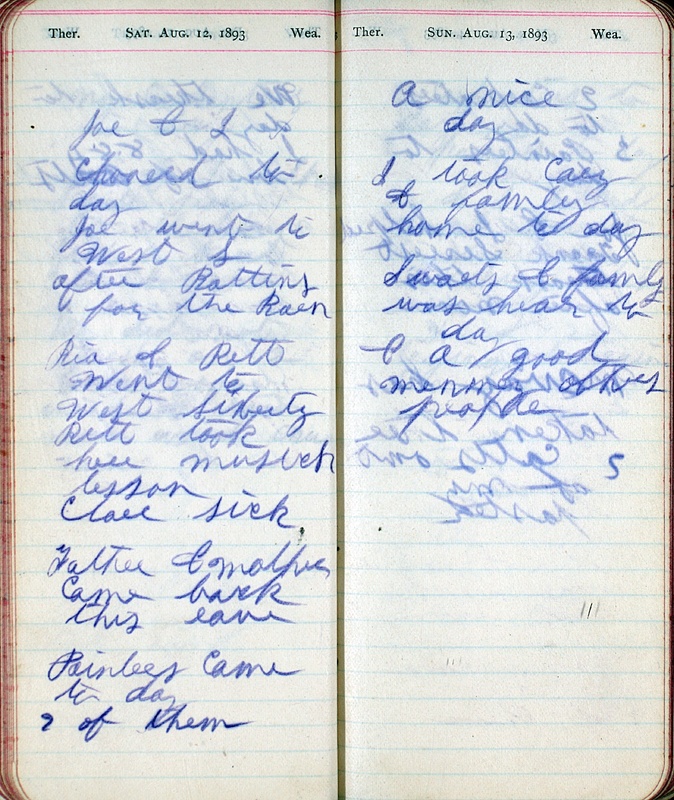 Ther. SAT. AUG. 12, 1893 Wea.
Joe & I
to
day
Joe went to
West L
after Ratting
for the Raen
Ria & Rett
Went to
West Liberty
Rett took
her musick
lesson
Clare sick
Father & mother
Came back
this eave
Painters Came
to day
2 of them
Ther. SUN. AUG. 13, 1893 Wea.
A nice
day
I took Caey
& family
home to day
Swarts & family
was hear to
day
& A good
menney others
people